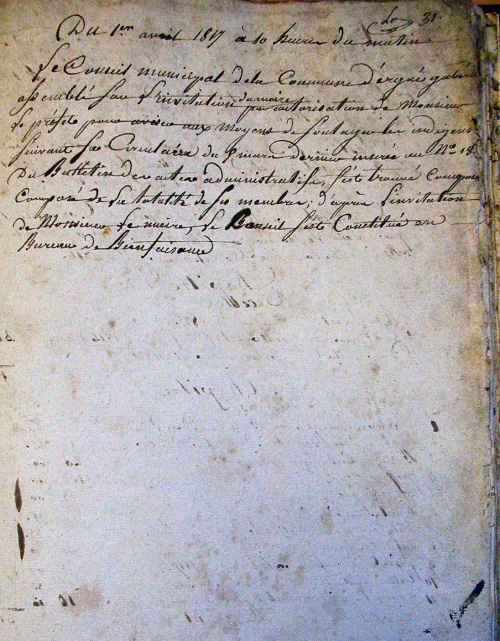 do 31.
Du 1er avril 1817 à 10 heures du matin
Le Conseil municipal de la Commune d'ergué gabéric
assemblé sur l'invitation du maire par autorisation de Monsieur
le préfet pour aviser aux moyens de soulager les indigens
suivant sa Circulaire du 7 mars dernier insérée au No 18
Du Bulletin des actes administratifs, s'est trouvé Composé
Composé de la totalité de ses membres, d'après l'invitation
de Monsieur le maire, le Conseil s'est Constitué en
Bureau de Bienfaisance